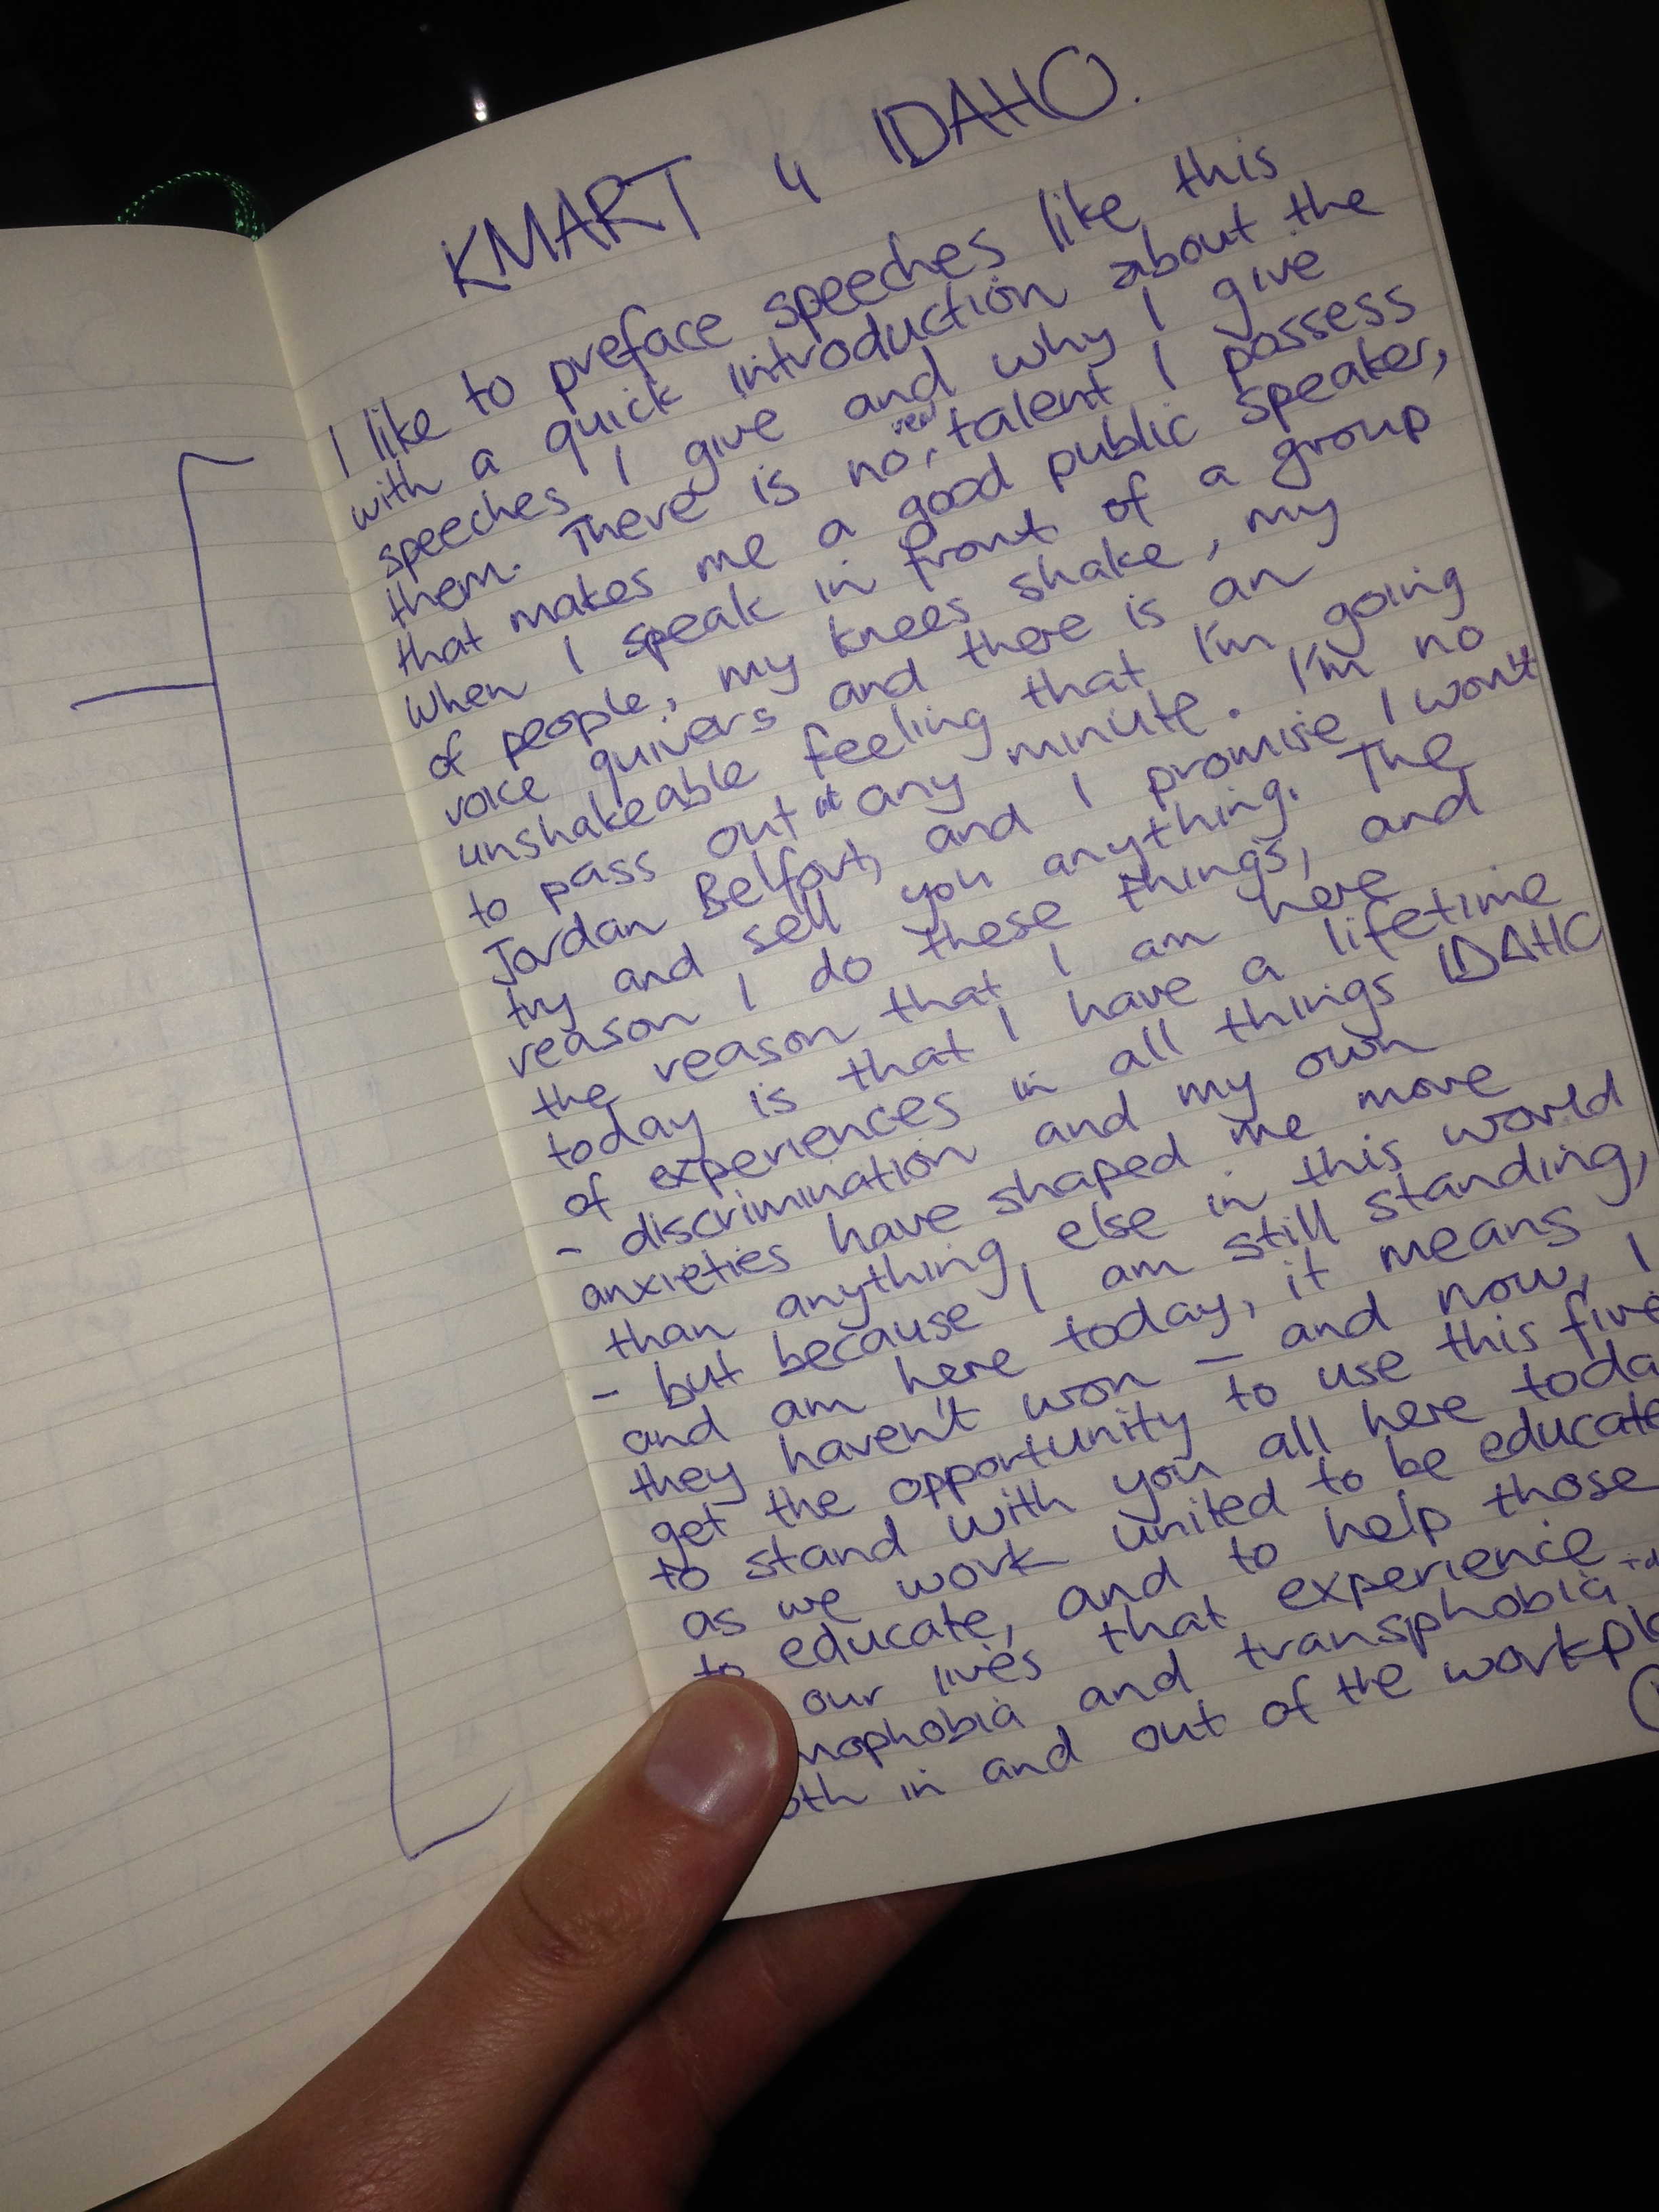 KMART 4 IDAHO.
I like to preface speeches like this
with a quick introduction about the
speeches I give and why I give
them. There is no real talent I possess
that makes me a good public speaker,
When I speak in front of a group
of people, my knees shake, my
voice quivers and there is an
unshakeable feeling that I'm going
to pass out at any minute. I'm no
Jordan Belfort, and I promise I won't
try and sell you anything. The
reason I do these things, and
the reason that I am here
today is that I have a lifetime
of experiences in all things IDAHO
- discrimination and my own
anxieties have shaped me more
than anything else in this world
- but because I am still standing,
and am here today, it means
they haven't won - and now, I
get the opportunity to use this five
to stand with you all here toda
as we work united to be educate
to educate, and to help those
our lives that experience
nophobia and transphobia
oth in and out of the workpla